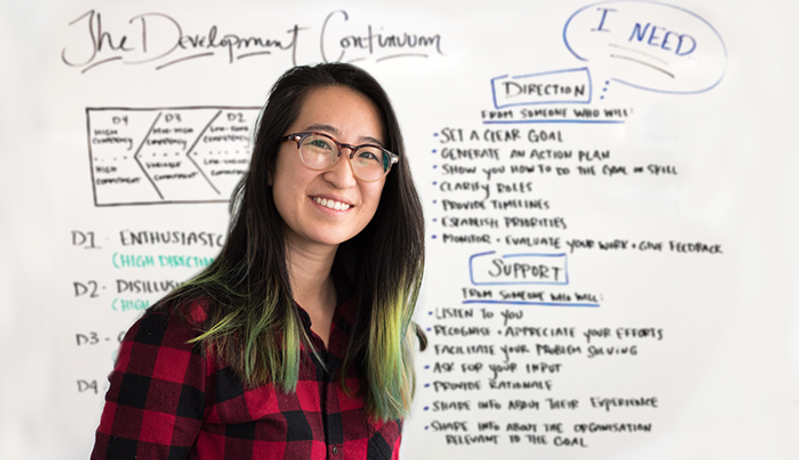 The Development Continuum
I NEED
D4 D3 D2
HIGH
COMPETENCY
HIGH
COMMITMENT
MOD-HIGH
COMPETENCY
VARIABLE
COMMITMENT
COMPETENCY
COMMITMENT
D1 - ENTHUSIASTC
(HIGH DIRECTI
D2 - DISILLUS
(HIGH
D3 -
D4
DIRECTION
FROM SOMEONE WHO WILL:
• SET A CLEAR GOAL
• GENERATE AN ACTION PLAN
• SHOW YOU HOW TO DO THE GOAL OR SKILL
• CLARIFY ROLES
• PROVIDE TIMELINES
• ESTABLISH PRIORITIES
• MONITOR + EVALUATE YOUR WORK + GIVE FEEDBACK
SUPPORT
FROM SOMEONE WHO WILL:
• LISTEN TO YOU
• RECOGNISE + APPRECIATE YOUR EFFORTS
FACILITATE YOUR PROBLEM SOLVING
• ASK FOR YOUR INPUT
• PROVIDE RATIONALE
• SHARE INFO ABOUT THEIR EXPERIENCE
• SHARE INFO ABOUT THE ORGANISATION
RELEVANT TO THE GOAL